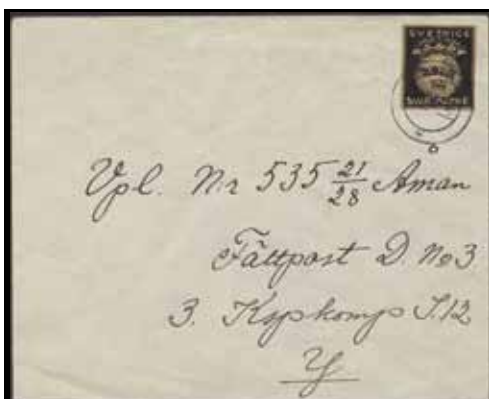 SVERIGE
Vpl. Nr 535 21/28 Åman
Fältpost D. No 3
3. Kspkomp I.12